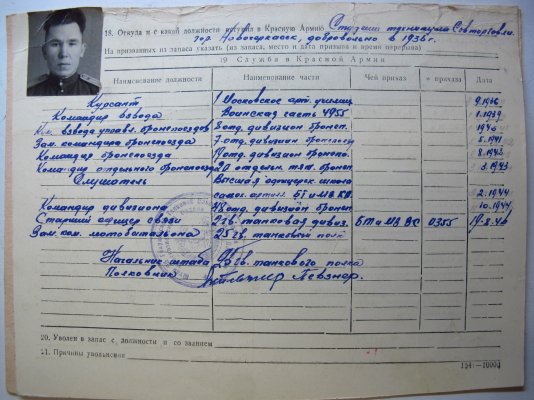 18. Откуда и с какой должности вступил в Красную Армию Студент техникума Совторговли
гор. Новочеркасск, добровольно в 1936 г.
На призванных из запаса указать (из запаса, место и дата призыва и время перерыва)
19 Служба в Красной Армии
Наименование должности Наименование части Чей приказ № приказа Дата
Курсант 1 Московское арт. училище 9.1936
Командир взвода Воинская часть 4955 1.1939
Ком. взвода управл. бронепоездов 8 отд. дивизион бронеп. 1940
Зам. командира бронепоезда 7 отд. дивизион бронепоезд 5.1941
Командир бронепоезда отд. дивизион бронепо. 8.1942
Командир отдельного бронепоезда 20 отдельн. бронеп. 3.1943
Слушатель Высшая офицерск. школа
самох. артил. БТ и МВ КА 2.1944
Командир дивизиона отд. дивизион бронеп 10.1944
Старший офицер связи гв. танковая дивиз. БТ и МВ ВС 0355 17.8.46
Зам. ком. мотобатальона 25 гв. танковый полк
Начальник штаба 25 гв. танкового полка
Полковник Певзнер.
20. Уволен в запас с должности и со званием
21. Причины увольнения